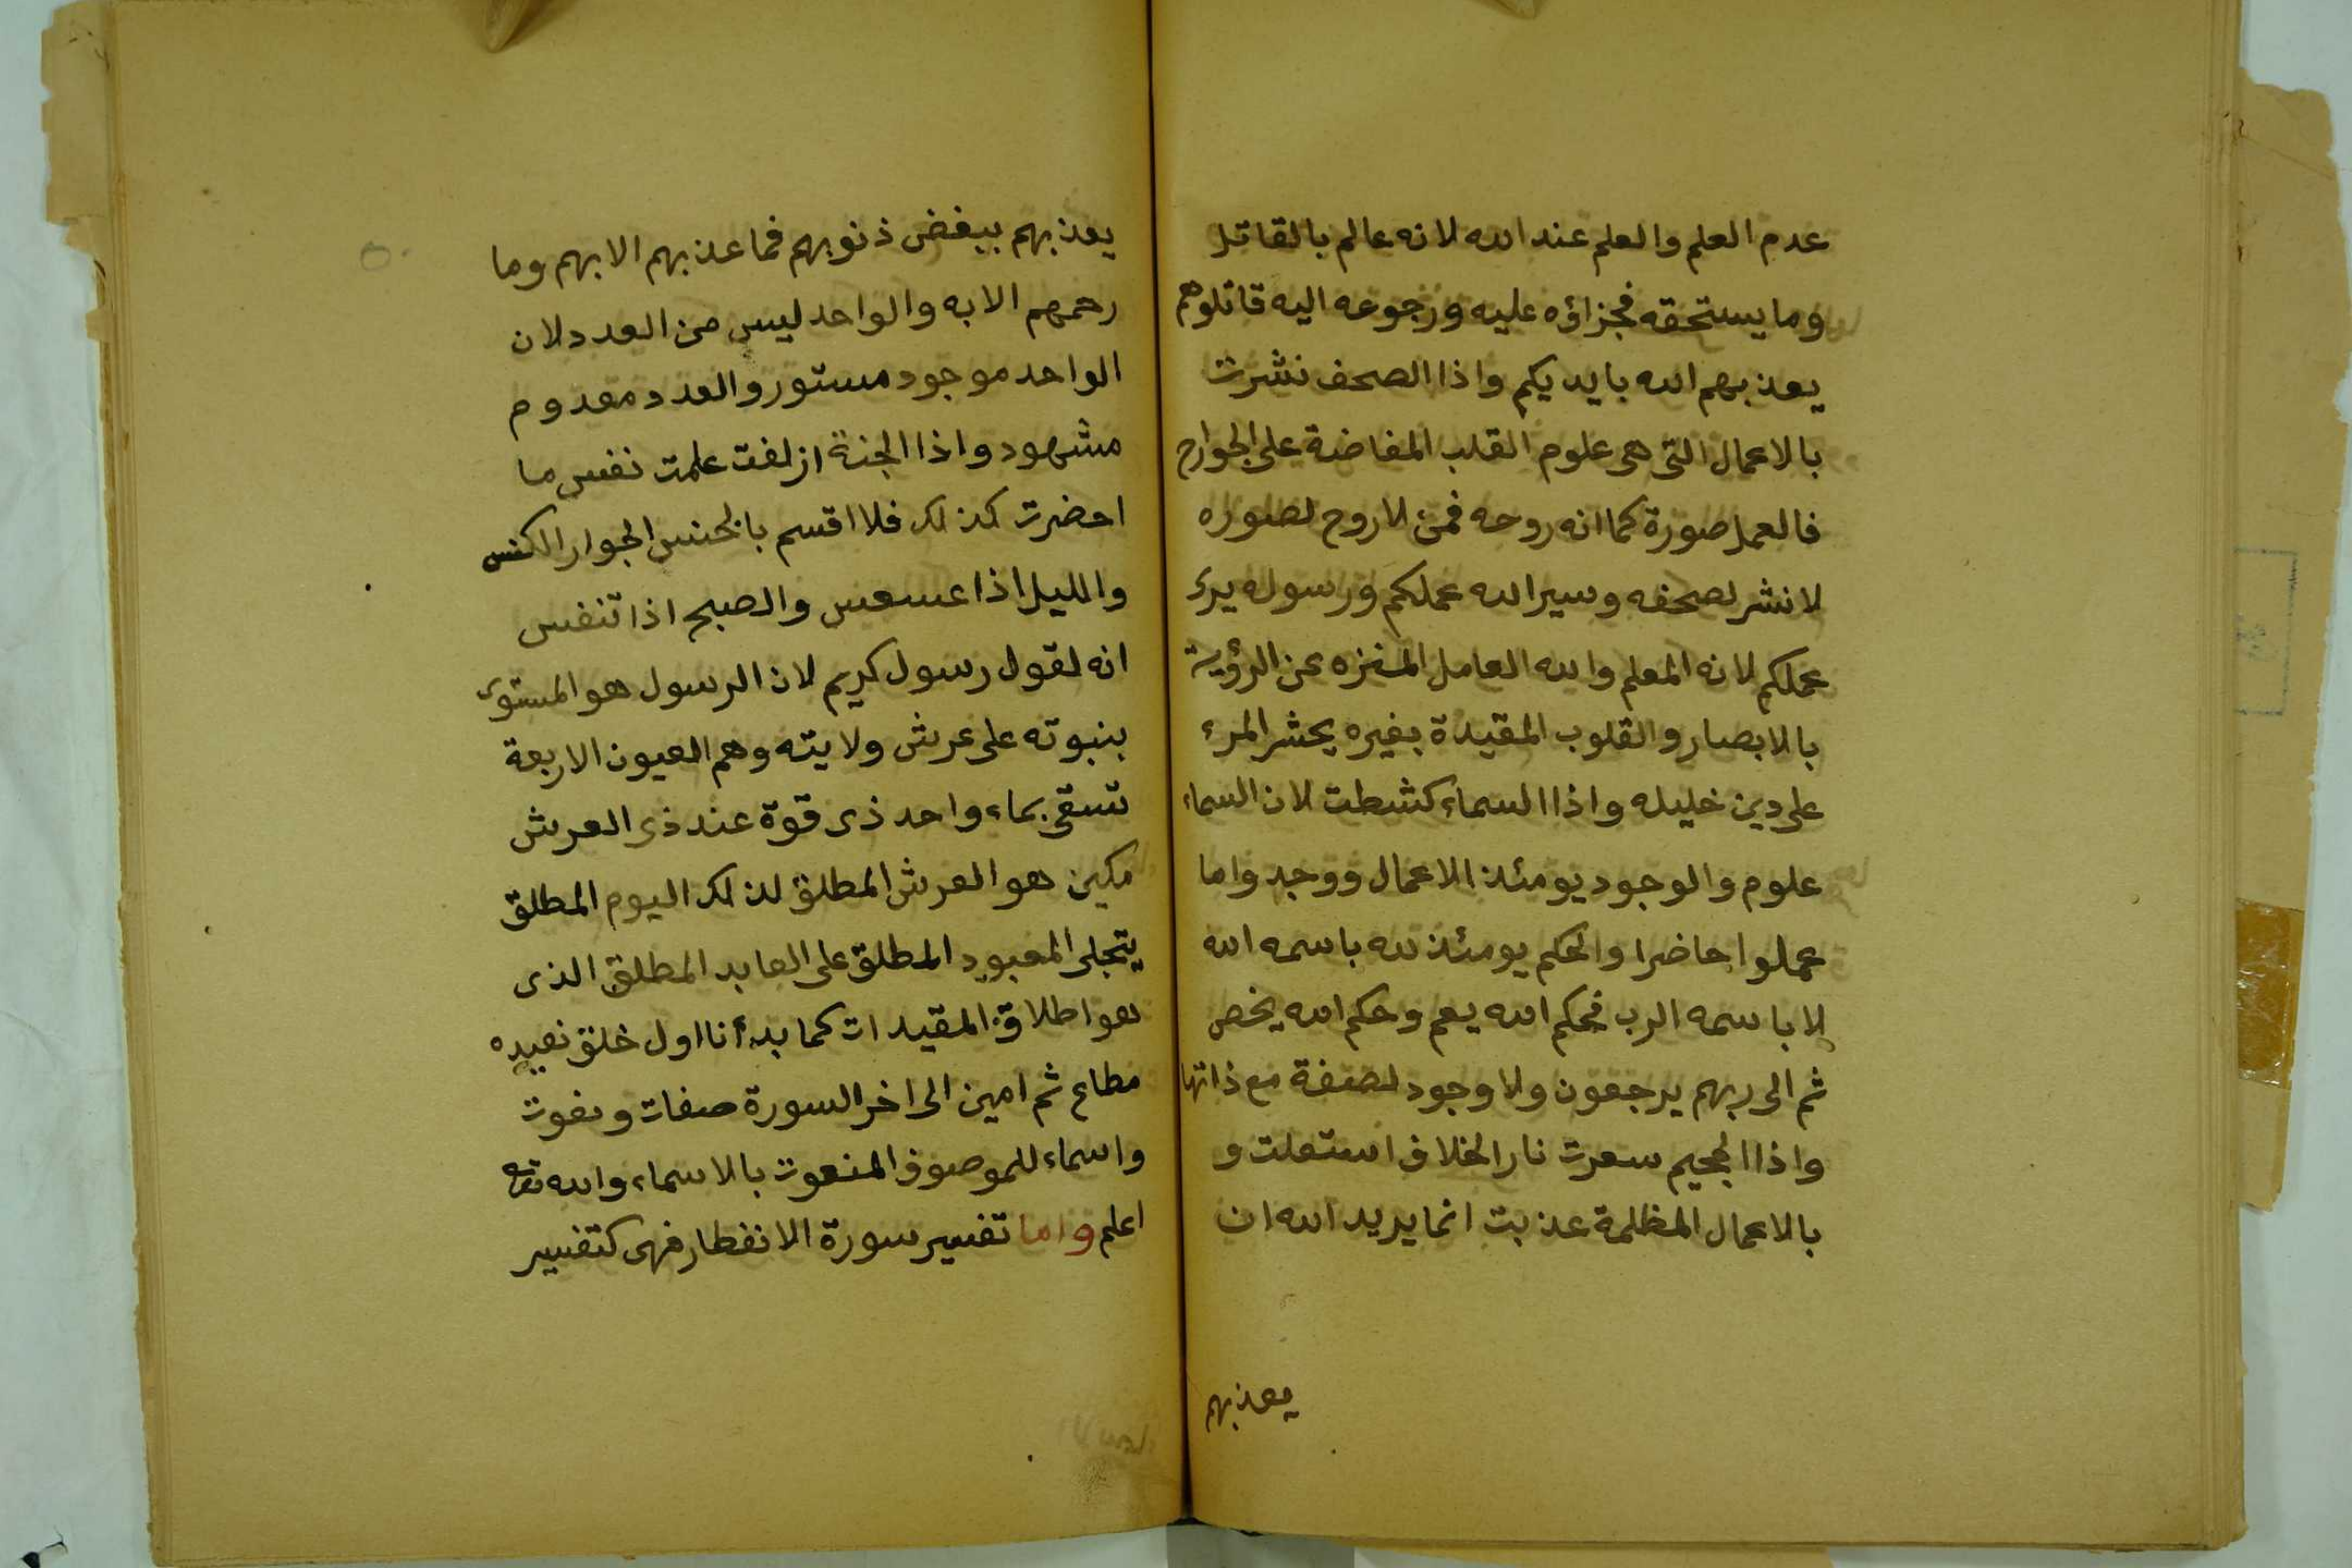 عدم العلم والعلم عند الله لانه عالم بالقاتل
وما يستحقه فجزاؤه عليه ورجوعه اليه قاتلوهم
يعذبهم الله بايديكم واذا الصحف نشرت
بالاعمال التى هى علوم القلب المفاضة على الجوارح
فالعمل صورة كما انه روحه فمن لا روح لصوره
لا نشر لصحفه وسيرا لله عملكم ورسوله يرى
عملكم لانه المعلم والله العامل المنزه عن الرؤية
بالابصار والقلوب المقيدة بغيره يحشر المرء
على دين خليله واذا السماء كشطت لان السماء
علوم والوجود يومئذ الاعمال ووجد واما
عملوا حاضرا والحكم يومئذ لله باسمه الله
لا باسمه الرب فحكم الله يعم وحكم الله يخص
ثم الى ربهم يرجعون ولا وجود لصفة مع ذاتها
واذا الجحيم سعرت نار الخلاف استعلت و
بالاعمال المظلمة عذبت انما يريد الله ان
يعذبهم
يعذبهم ببغض ذنوبهم فما عذبهم الا بهم وما
رحمهم الا به والواحد ليس من العدد لان
الواحد موجود مستور والعدد معدوم
مشهود واذا الجنة ازلفت علمت نفس ما
احضرت كذلك فلا اقسم بالخنس الجوار الكنس
والليل اذا عسعس والصبح اذا تنفس
انه لقول رسول كريم لان الرسول هو المستوى
بنبوته على عرش ولايته وهم العيون الاربعة
تسقى بماء واحد ذى قوة عند ذى العرش
مكين هو العرش المطلق لذلك اليوم المطلق
يتجلى المعبود المطلق على العابد المطلق الذى
هو اطلاق المقيدات كما بدأنا اول خلق نعيده
مطاع ثم امين الى اخر السورة صفات ونعوت
واسماء للموصوف المنعوت بالاسماء والله تعالى
اعلم واما تفسير سورة الانفطار فهى كتفسير